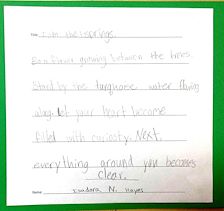 Title: I am the springs.
flowing between the trees.
Start by the turquoise water flowing
away. Let your heart become
filled with curiosty. Next
everything around you becomes
clear.
Name: Isadora N. Hayes